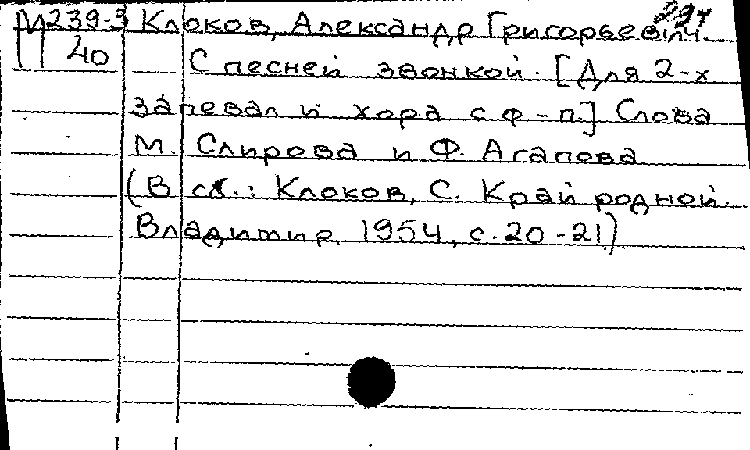 М239-3 Клоков, Александр Григорьевич.
40 С песней звонкой. [Для 2-х
запевал и хора с ф-п.] Слова
М. Спирова и Ф. Агапова
(В сб.: Клоков, С. Край родной.
Владимир, 1954, с. 20-21)